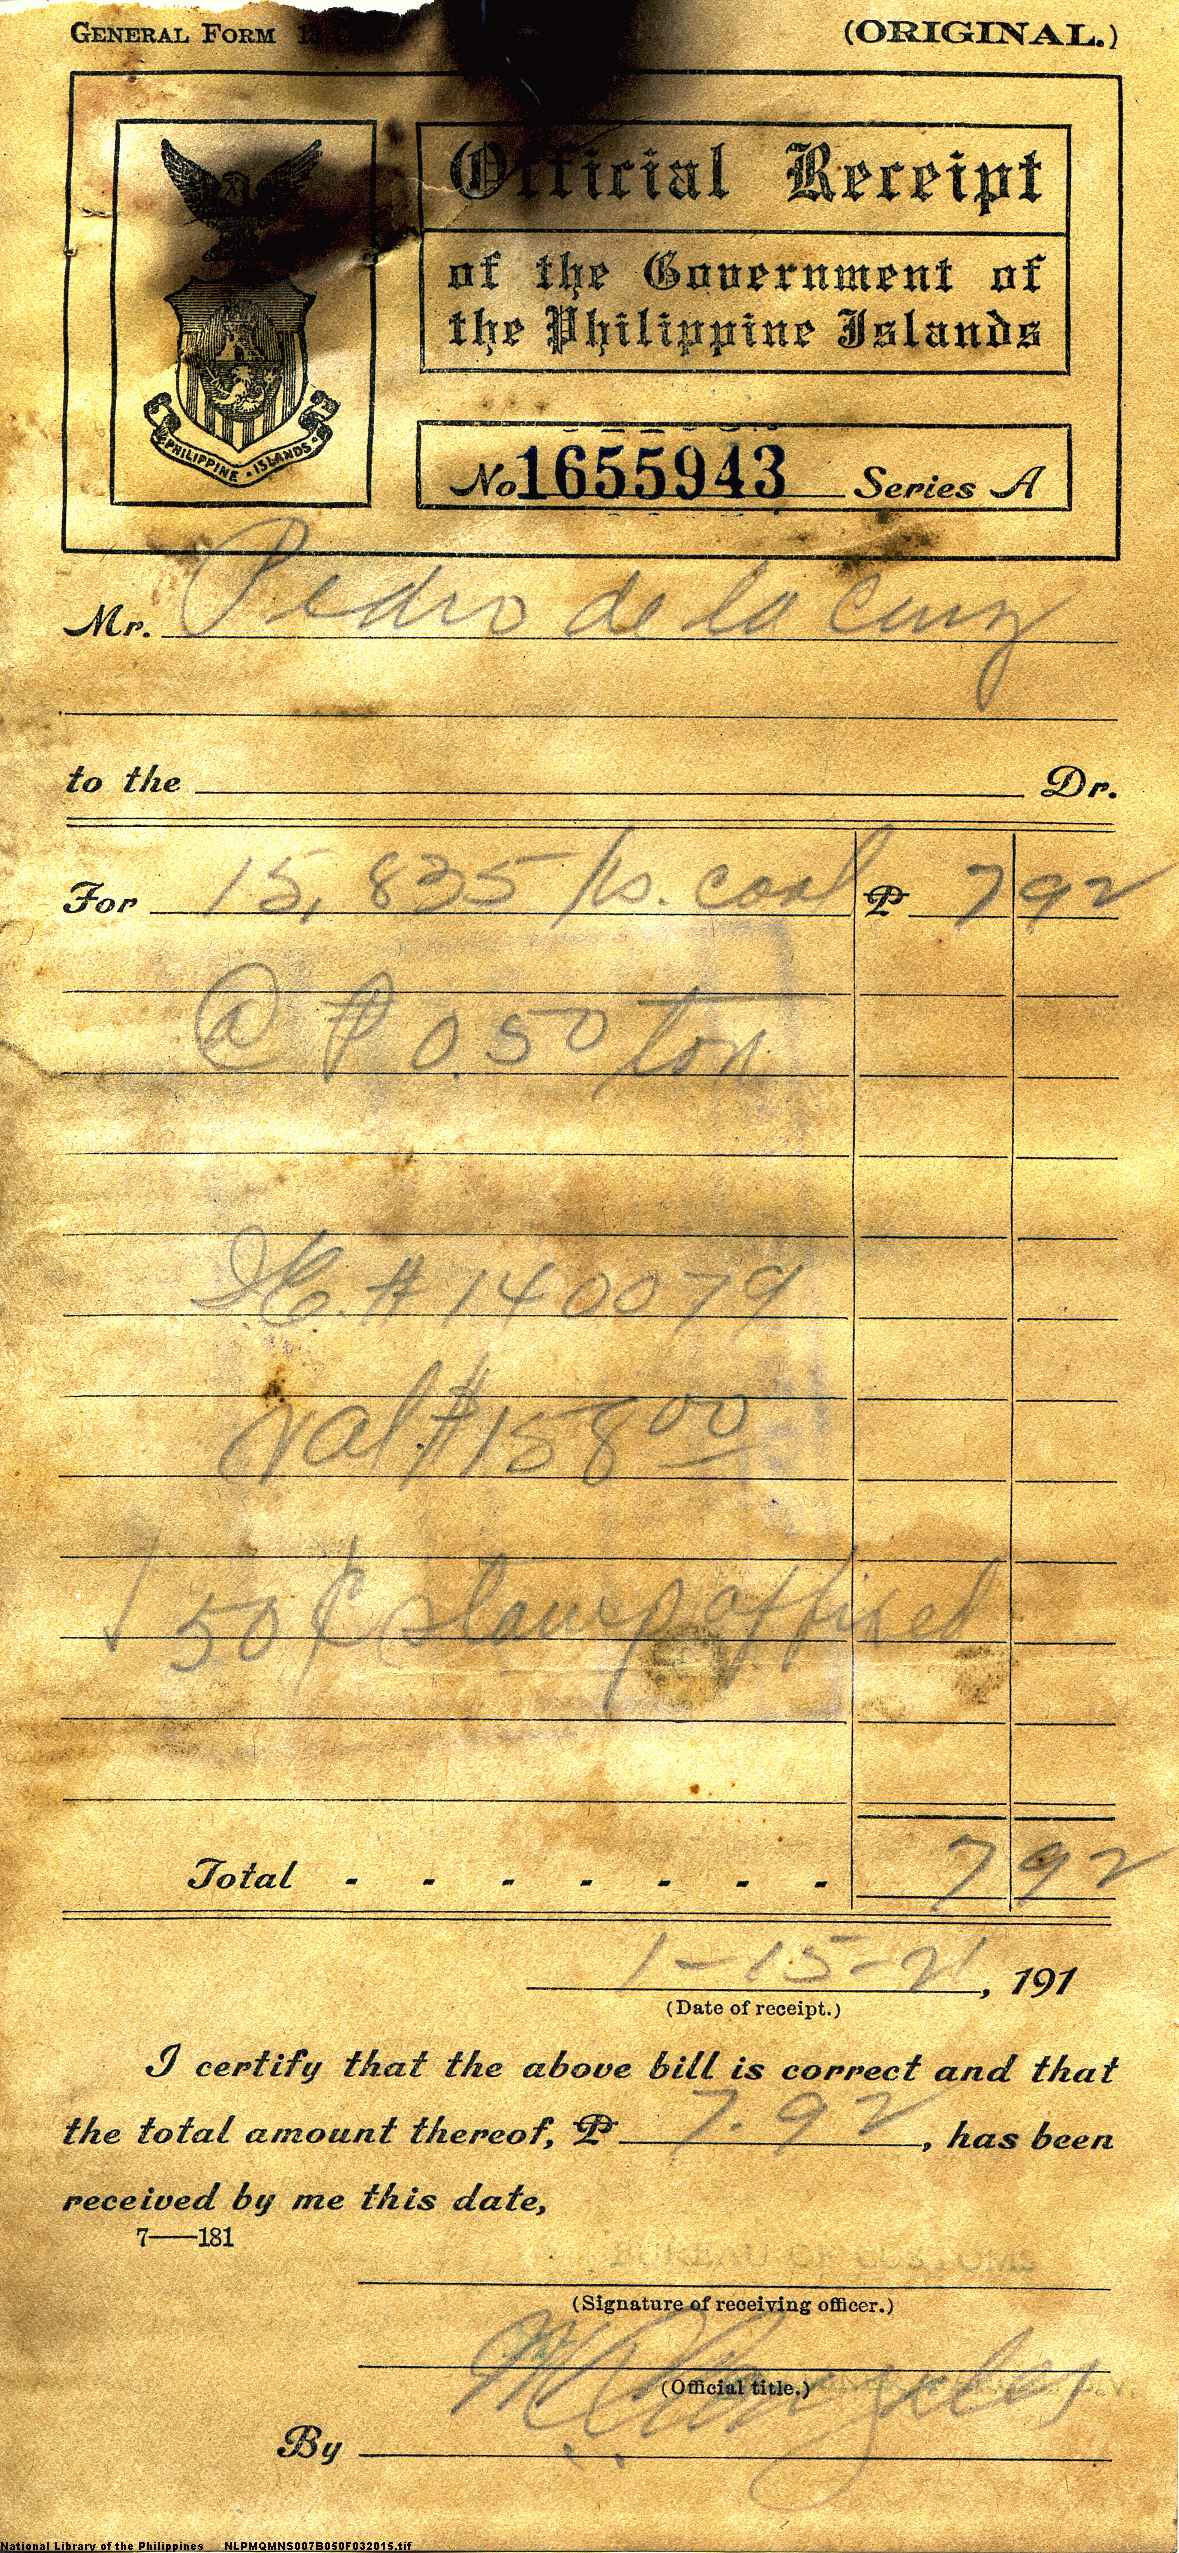 GENERAL FORM
(ORIGINAL.)
Official Receipt
of the Government of
the Philippine Islands
PHILIPPINE ISLANDS
No 1655943 Series A
Mr. Pedro de la Cruz
to the Dr.
For 15,835 ks. coal ₱ 7 92
@ ₱ 0.50 ton
# 140079
Val ₱158 00
50 ¢ stamp affixed
Total - - - - - - - 7 92
1-15-21, 191
(Date of receipt.)
I certify that the above bill is correct and that
the total amount thereof, ₱ 7.92, has been
received by me this date,
7—181
BUREAU OF CUSTOMS
(Signature of receiving officer.)
(Official title.)
By
National Library of the Philippines NLPMQMNS007B050F032015.tif